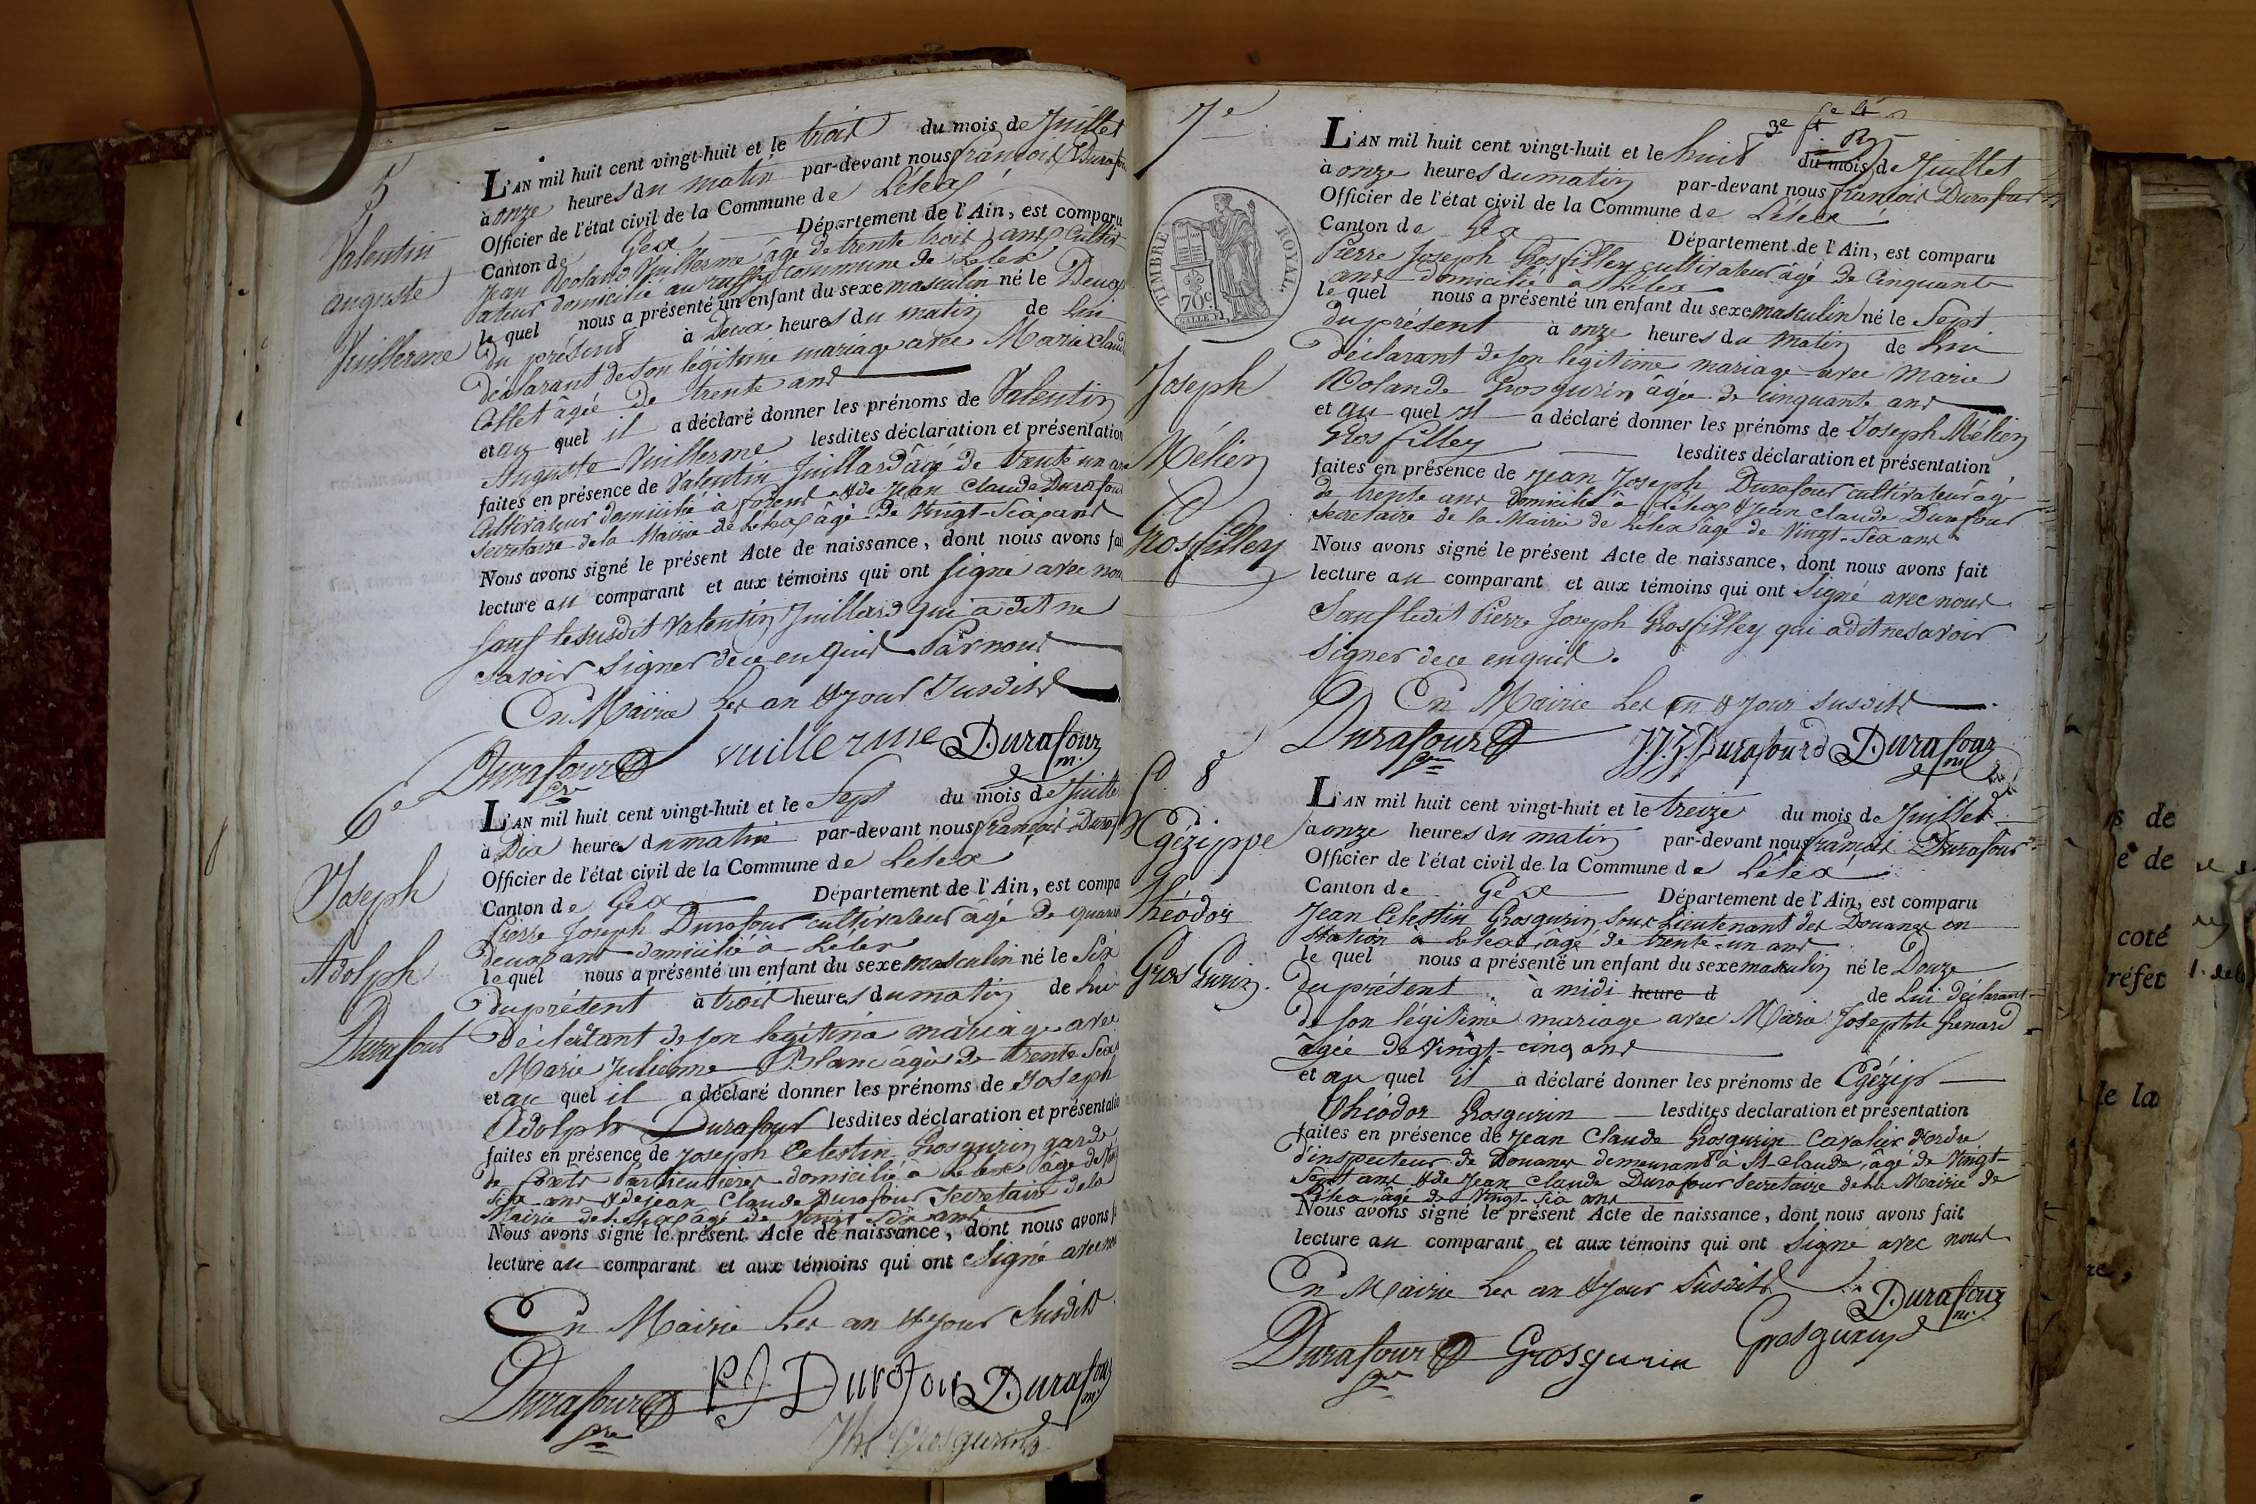 5
Valentin
Auguste
Vuillerme
L'AN mil huit cent vingt-huit et le trois du mois de Juillet
à onze heures du matin par-devant nous françois Durafour
Officier de l'état civil de la Commune de Lélex
Canton de Gex Département de l'Ain, est comparu
Jean Roland Vuillerme âgé de trente trois ans Culti-
vateur domicilié au commune de Lélex
le quel nous a présenté un enfant du sexe masculin né le Deux
du présent à Deux heures du matin de Lui
Déclarant de son légitime mariage avec Marie Claud
Collet âgée de trente ans
et au quel il a déclaré donner les prénoms de Valentin
Auguste Vuillerme lesdites déclaration et présentation
faites en présence de Valentin Juillard âgé de trente un ans
Cultivateur domicilié à & de Jean Claude Durafour
Secretaire de la Mairie de Lélex âgé de Vingt-Six ans
Nous avons signé le présent Acte de naissance, dont nous avons fai
lecture au comparant et aux témoins qui ont signé avec nous
Sauf le susdit Valentin Juillard qui a dit ne
savoir signer de ce enquis Par nous
En Mairie Les an & jour Susdits
Durafour vuillerme Durafour
sre mre
6e
Joseph
Adolph
Durafour
L'AN mil huit cent vingt-huit et le Sept du mois de Juille
à Dix heures du matin par-devant nous françois Duraf
Officier de l'état civil de la Commune de Lélex
Canton de Gex Département de l'Ain, est compa
Pierre Joseph Durafour cultivateur âgé de quaran
deux ans domicilié à Lélex
le quel nous a présenté un enfant du sexe masculin né le Six
du présent à trois heures du matin de Lui
Déclarant de son légitime mariage avec
Marie Julienne Blanc âgée de trente Six
et au quel il a déclaré donner les prénoms de Joseph
Adolph Durafour lesdites déclaration et présentatio
faites en présence de Joseph Celestin Grosgurin garde
de forets Particulieres domicilié à Lelex âgé de Vin
Six ans & de Jean Claude Durafour Secretaire de la
Mairie de Lelex âgé de Vingt Six ans
Nous avons signé le présent Acte de naissance, dont nous avons f
lecture au comparant et aux témoins qui ont Signé avec no
En Mairie Les an & jour Susdits
Durafour P J Durafour Durafour
sre mre
Grosgurin
7e
TIMBRE ROYAL.
70c.
Joseph
Mélien
Grosfilley
L'AN mil huit cent vingt-huit et le huit du mois de Juillet
à onze heures du matin par-devant nous françois Durafour
Officier de l'état civil de la Commune de Lélex
Canton de Gex Département de l'Ain, est comparu
Pierre Joseph Grosfilley cultivateur âgé de Cinquante
ans domicilié à Lélex
le quel nous a présenté un enfant du sexe masculin né le Sept
du présent à onze heures du matin de Lui
déclarant de son légitime mariage avec Marie
Rolande Grosgurin âgée de cinquante ans
et au quel il a déclaré donner les prénoms de Joseph Mélien
Grosfilley lesdites déclaration et présentation
faites en présence de Jean Joseph Durafour cultivateur âgé
de trente ans domicilié à Lélex & Jean Claude Durafour
Secretaire de la Mairie de Lélex âgé de Vingt-Six ans
Nous avons signé le présent Acte de naissance, dont nous avons fait
lecture au comparant et aux témoins qui ont Signé avec nous
Sauf ledit Pierre Joseph Grosfilley qui a dit ne savoir
Signer de ce enquis.
En Mairie Les an & jour susdits
Durafour J.J. Durafourd Durafour
sre mre
8
Egézippe
Théodor
Gros Gurin.
L'AN mil huit cent vingt-huit et le treize du mois de Juillet
à onze heures du matin par-devant nous françois Durafour
Officier de l'état civil de la Commune de Lélex
Canton de Gex Département de l'Ain, est comparu
Jean Celestin Grosgurin Sous Lieutenant des Douanes en
Station à Lelex, âgé de trente-un ans
le quel nous a présenté un enfant du sexe masculin né le Douze
du présent à midi heure d de Lui déclarant
de son légitime mariage avec Marie Josephte Grenard
âgée de Vingt-cinq ans
et au quel il a déclaré donner les prénoms de Egézip
Théodor Grosgurin lesdites declaration et présentation
faites en présence de Jean Claude Grosgurin Cavalier d'ordre
d'inspecteur de Douanes demeurant à St-Claude, âgé de Vingt-
Sept ans & de Jean Claude Durafour Secretaire de la Mairie de
Lélex, âgé de Vingt-Six ans
Nous avons signé le présent Acte de naissance, dont nous avons fait
lecture au comparant et aux témoins qui ont Signé avec nous
En Mairie Les an & jour Susdits
Durafour
mre
Durafour Grosgurin Grosgurin
sre
s de
e de
coté
réfet
le la
re,